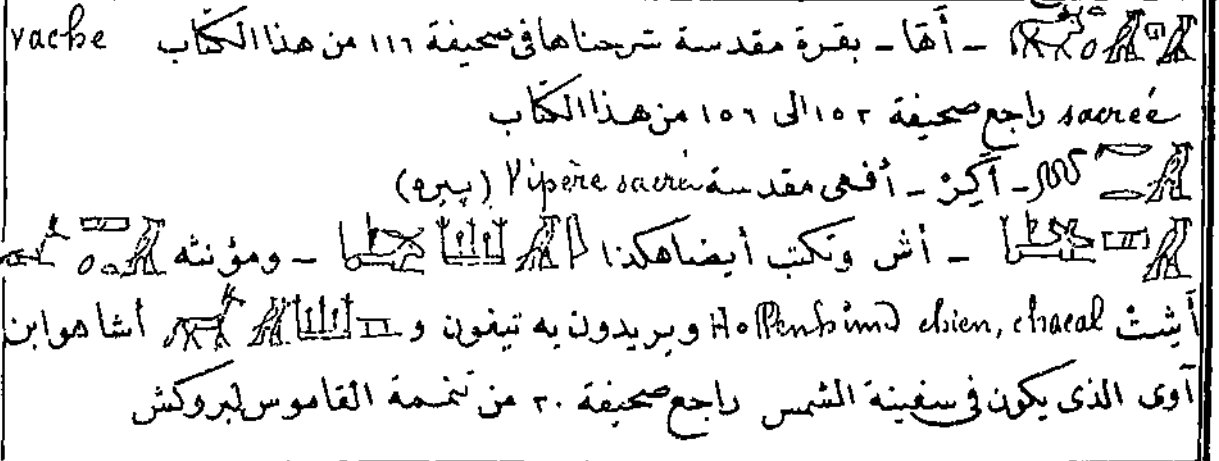 ـ أَهَا ـ بقرة مقدسة شرحناها فى صحيفة ١١٦ من هذا الكتاب vache
sacrée راجع صحيفة ١٥٢ الى ١٥٦ من هذا الكتاب
ـ آكِرْ ـ أفعى مقدسة Vipère sacrée (پيره)
ـ أش وتكتب أيضا هكذا ـ ومؤنثه
أَشِتْ chien, chacal ويريدون به تيفون و أشا هو ابن
آوى الذى يكون فى سفينة الشمس راجع صحيفة ٢٠ من تتمة القاموس لبروكش